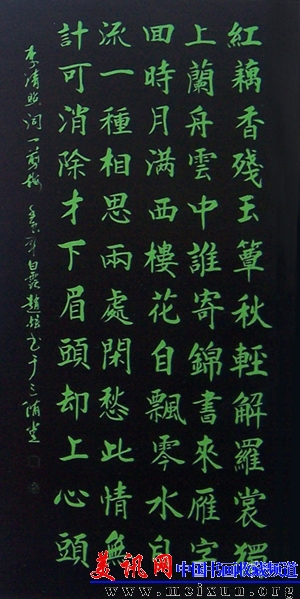 紅藕香殘玉簟秋輕解羅裳獨
上蘭舟雲中誰寄錦書來雁字
囬時月满西樓花自飄零水自
流一種相思兩處閑愁此情無
計可消除才下眉頭却上心頭
李清照词一剪梅 年白露趙 书于三 堂
美讯网 中国书画收藏频道
www.meixun.org